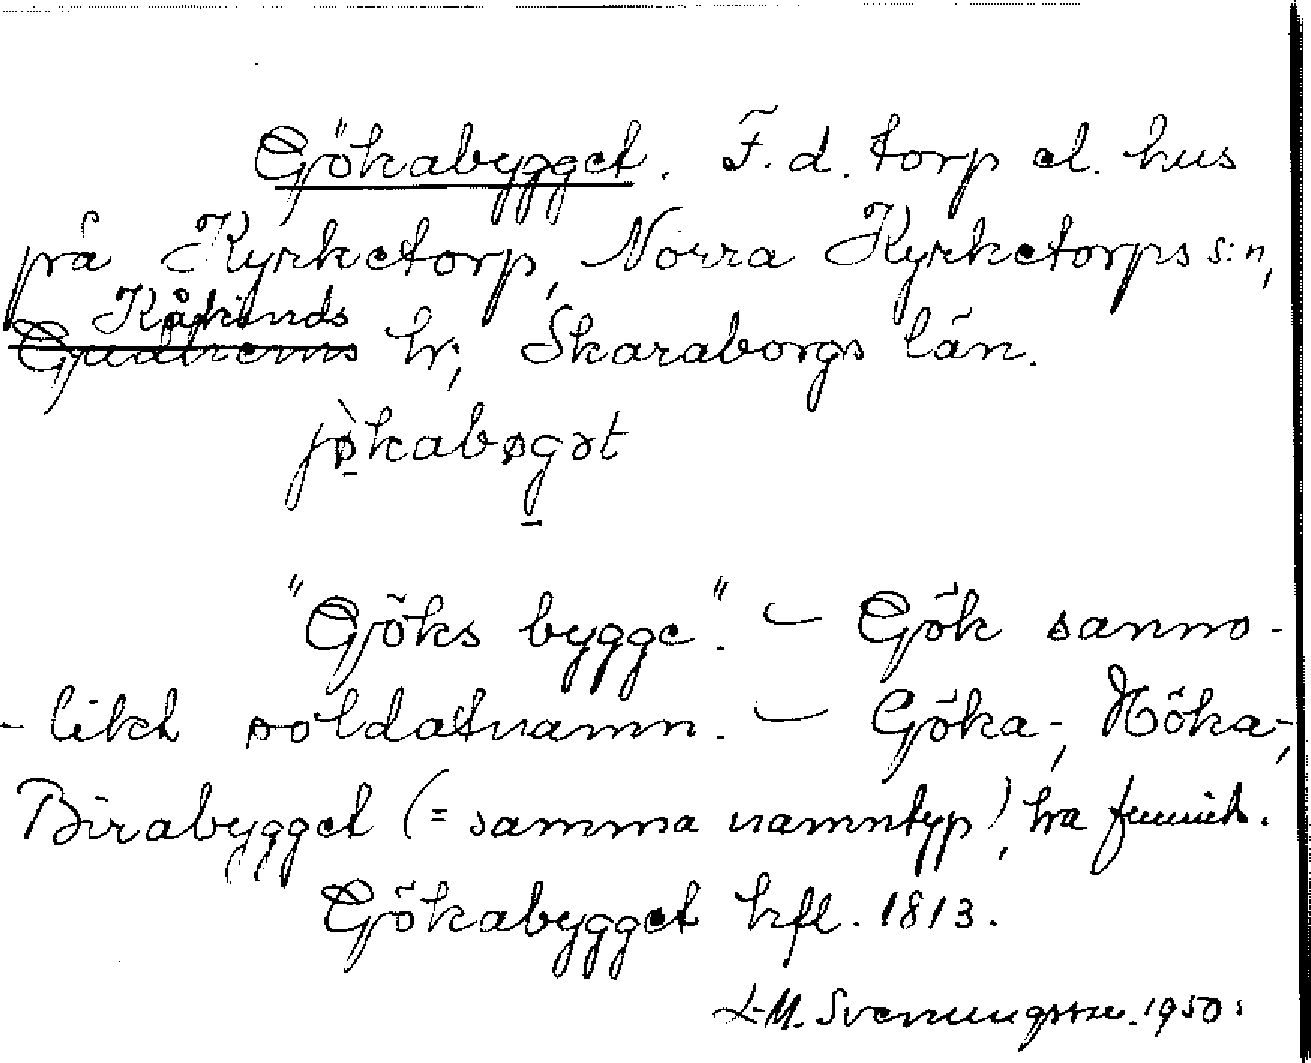 Gökabygget. F.d. torp el. hus
på Kyrketorp, Norra Kyrketorps s:n,
Kåkinds
Gudhems hr, Skaraborgs län.
jø̀kabøgət
"Göks bygge". – Gök sanno-
-likt soldatnamn. – Göka-, Höka-,
Birabygget (= samma namntyp), ha funnits.
Gökabygget hfl. 1813.
L-M. Svenungsson. 1950.